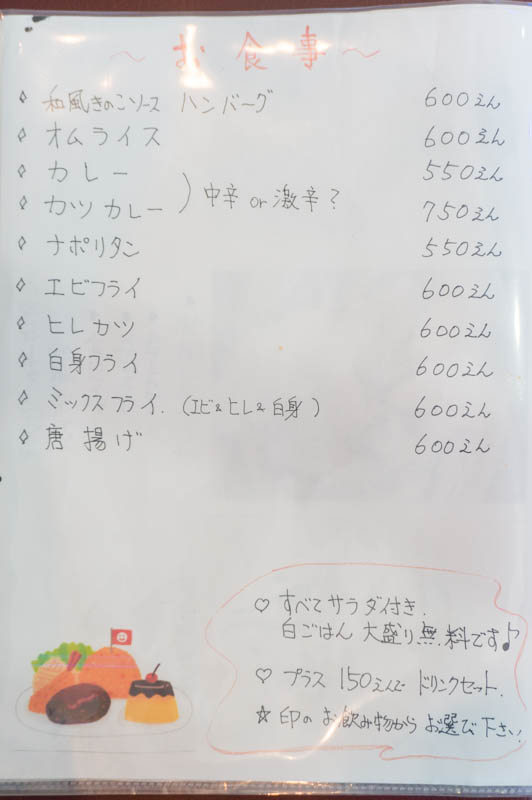 ～お食事～
◇ 和風きのこソース ハンバーグ 600えん
◇ オムライス 600えん
◇ カレー 550えん
◇ カツカレー 750えん
) 中辛 or 激辛?
◇ ナポリタン 550えん
◇ エビフライ 600えん
◇ ヒレカツ 600えん
◇ 白身フライ 600えん
◇ ミックスフライ. (エビ&ヒレ&白身) 600えん
◇ 唐揚げ 600えん
♡ すべてサラダ付き.
白ごはん 大盛り無料です♪
♡ プラス 150えんで ドリンクセット.
☆ 印の お飲み物から お選び下さい!